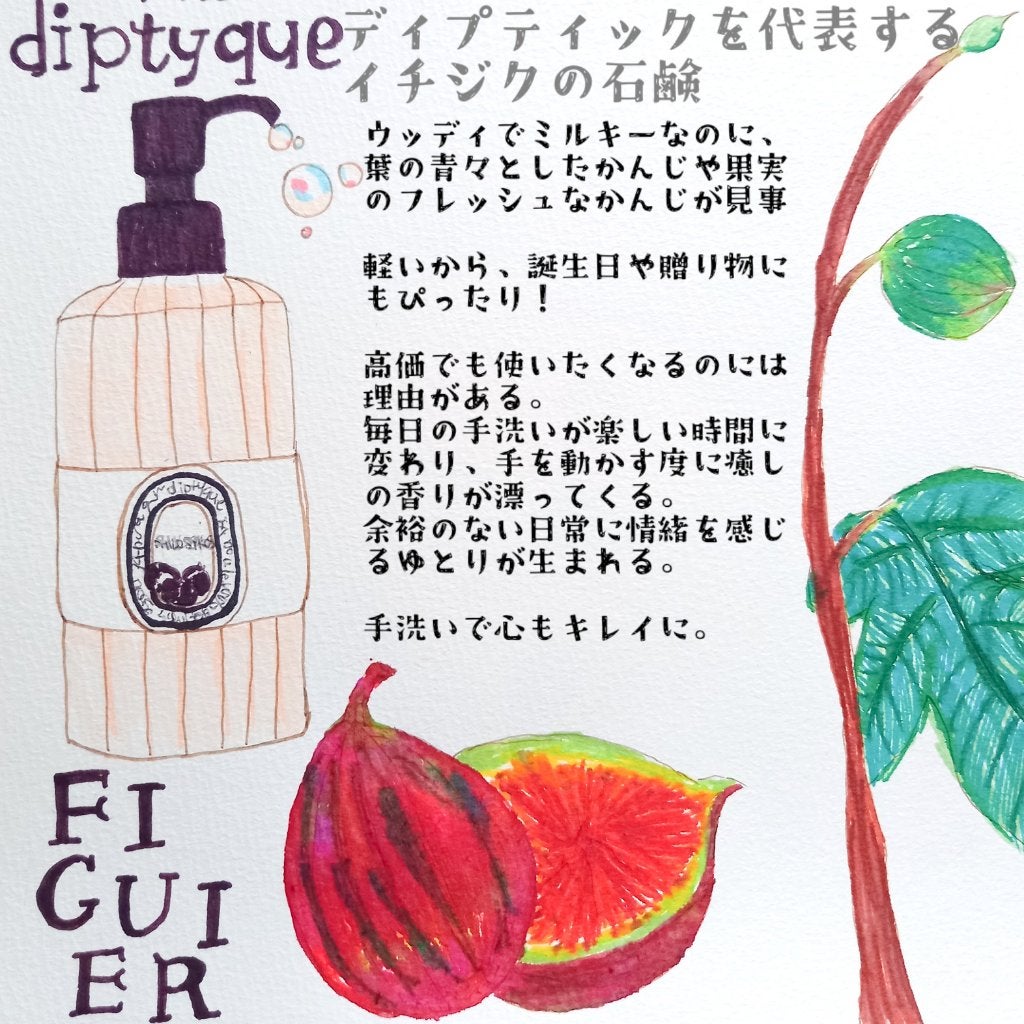 diptyque
ディプティックを代表する
イチジクの石鹸
ウッディでミルキーなのに、
葉の青々としたかんじや果実
のフレッシュなかんじが見事
軽いから、誕生日や贈り物に
もぴったり！
高価でも使いたくなるのには
理由がある。
毎日の手洗いが楽しい時間に
変わり、手を動かす度に癒し
の香りが漂ってくる。
余裕のない日常に情緒を感じ
るゆとりが生まれる。
手洗いで心もキレイに。
diptyque
FI
GUI
ER